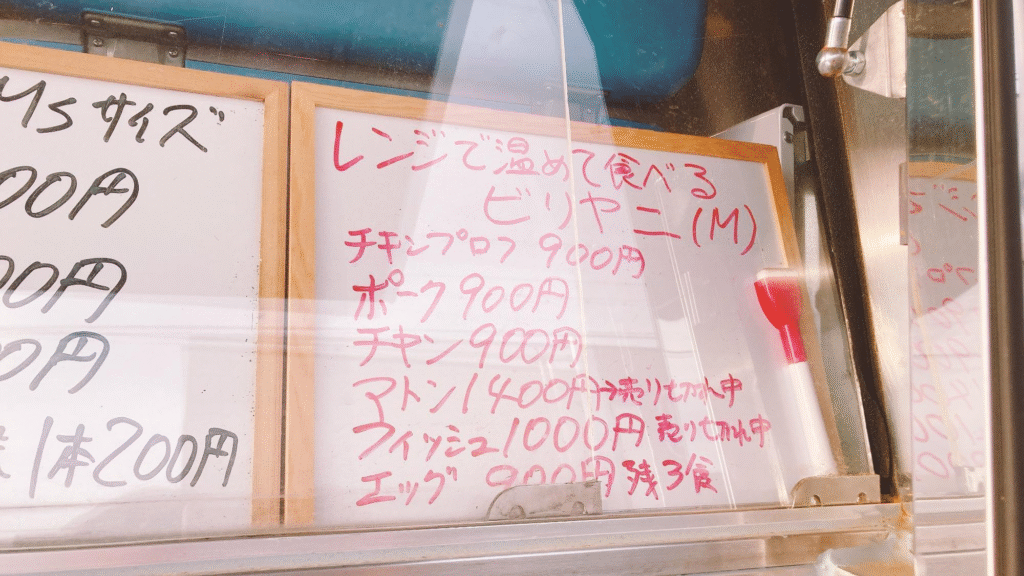 Msサイズ
00円
00円
0円
1本200円
レンジで温めて食べる
ビリヤニ(M)
チキンプロフ 900円
ポーク 900円
チキン 900円
マトン 1400円→売り切れ中
フィッシュ 1000円 売り切れ中
エッグ 900円 残3食